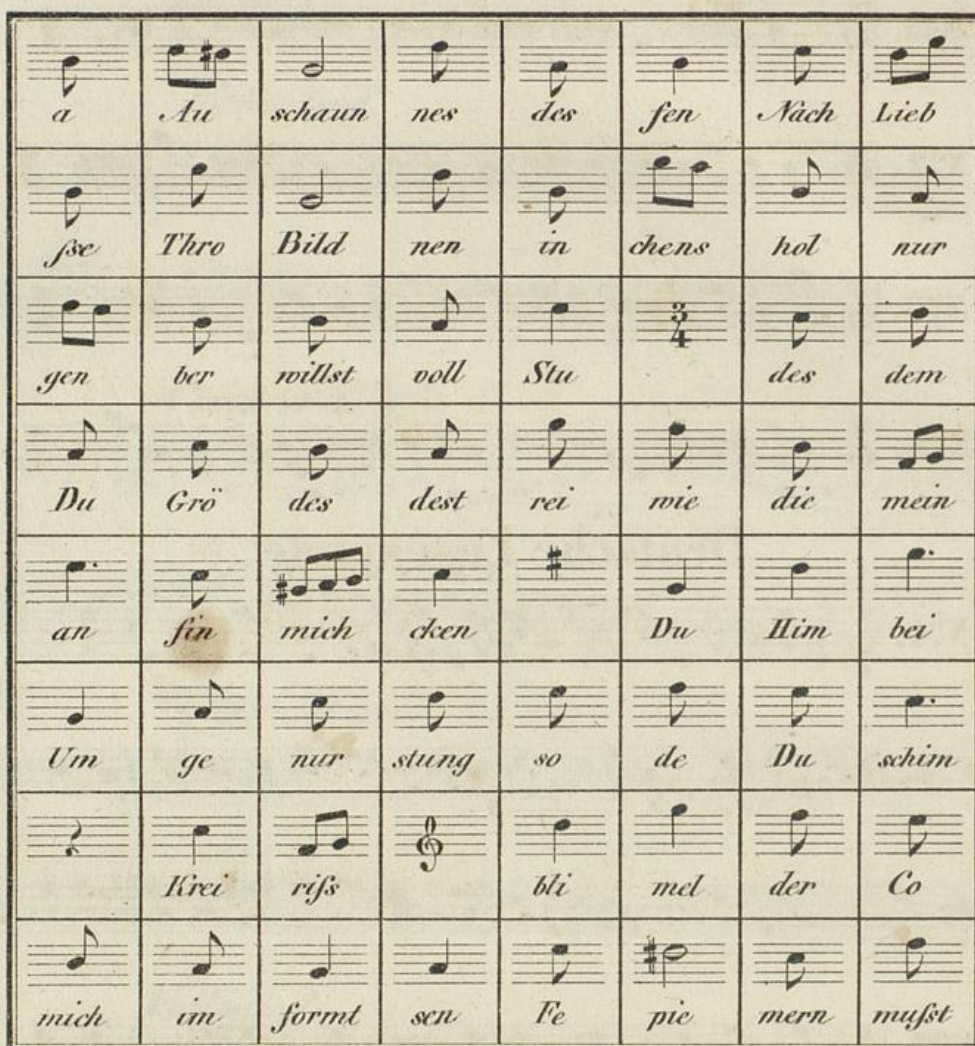 a Au schaun nes des fen Nach Lieb
ſse Thro Bild nen in chens hol nur
gen ber willst voll Stu 3/4 des dem
Du Grö des dest rei wie die mein
an fin mich cken Du Him bei
Um ge nur stung so de Du schim
Krei riſs bli mel der Co
mich im formt sen Fe pie mern muſst